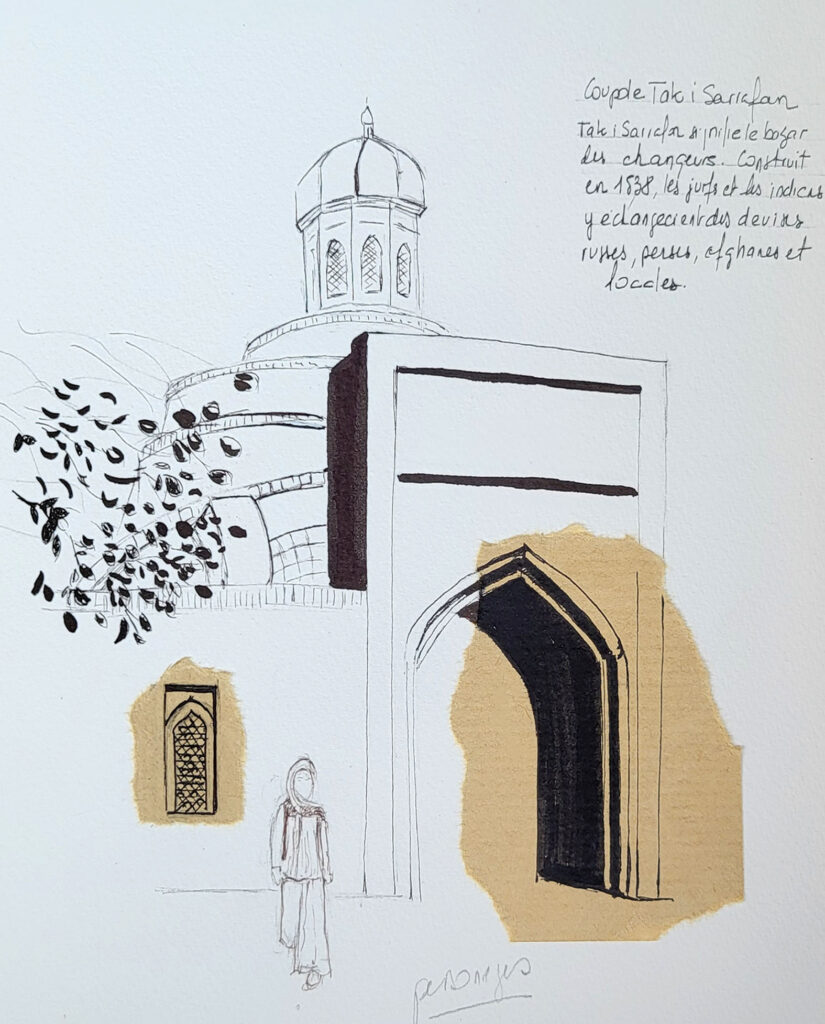 Coupole Taki Sarrafan
Taki Sarrafan signifie le bazar
des changeurs. Construit
en 1538, les juifs et les indiens
y échangeaient des devises
russes, perses, afghanes et
locales.